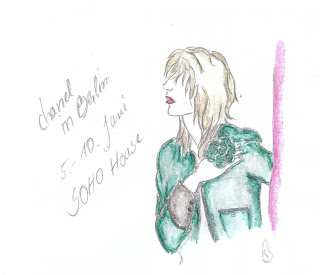 chanel
in Berlin
5.- 10. Juni
SOHO House